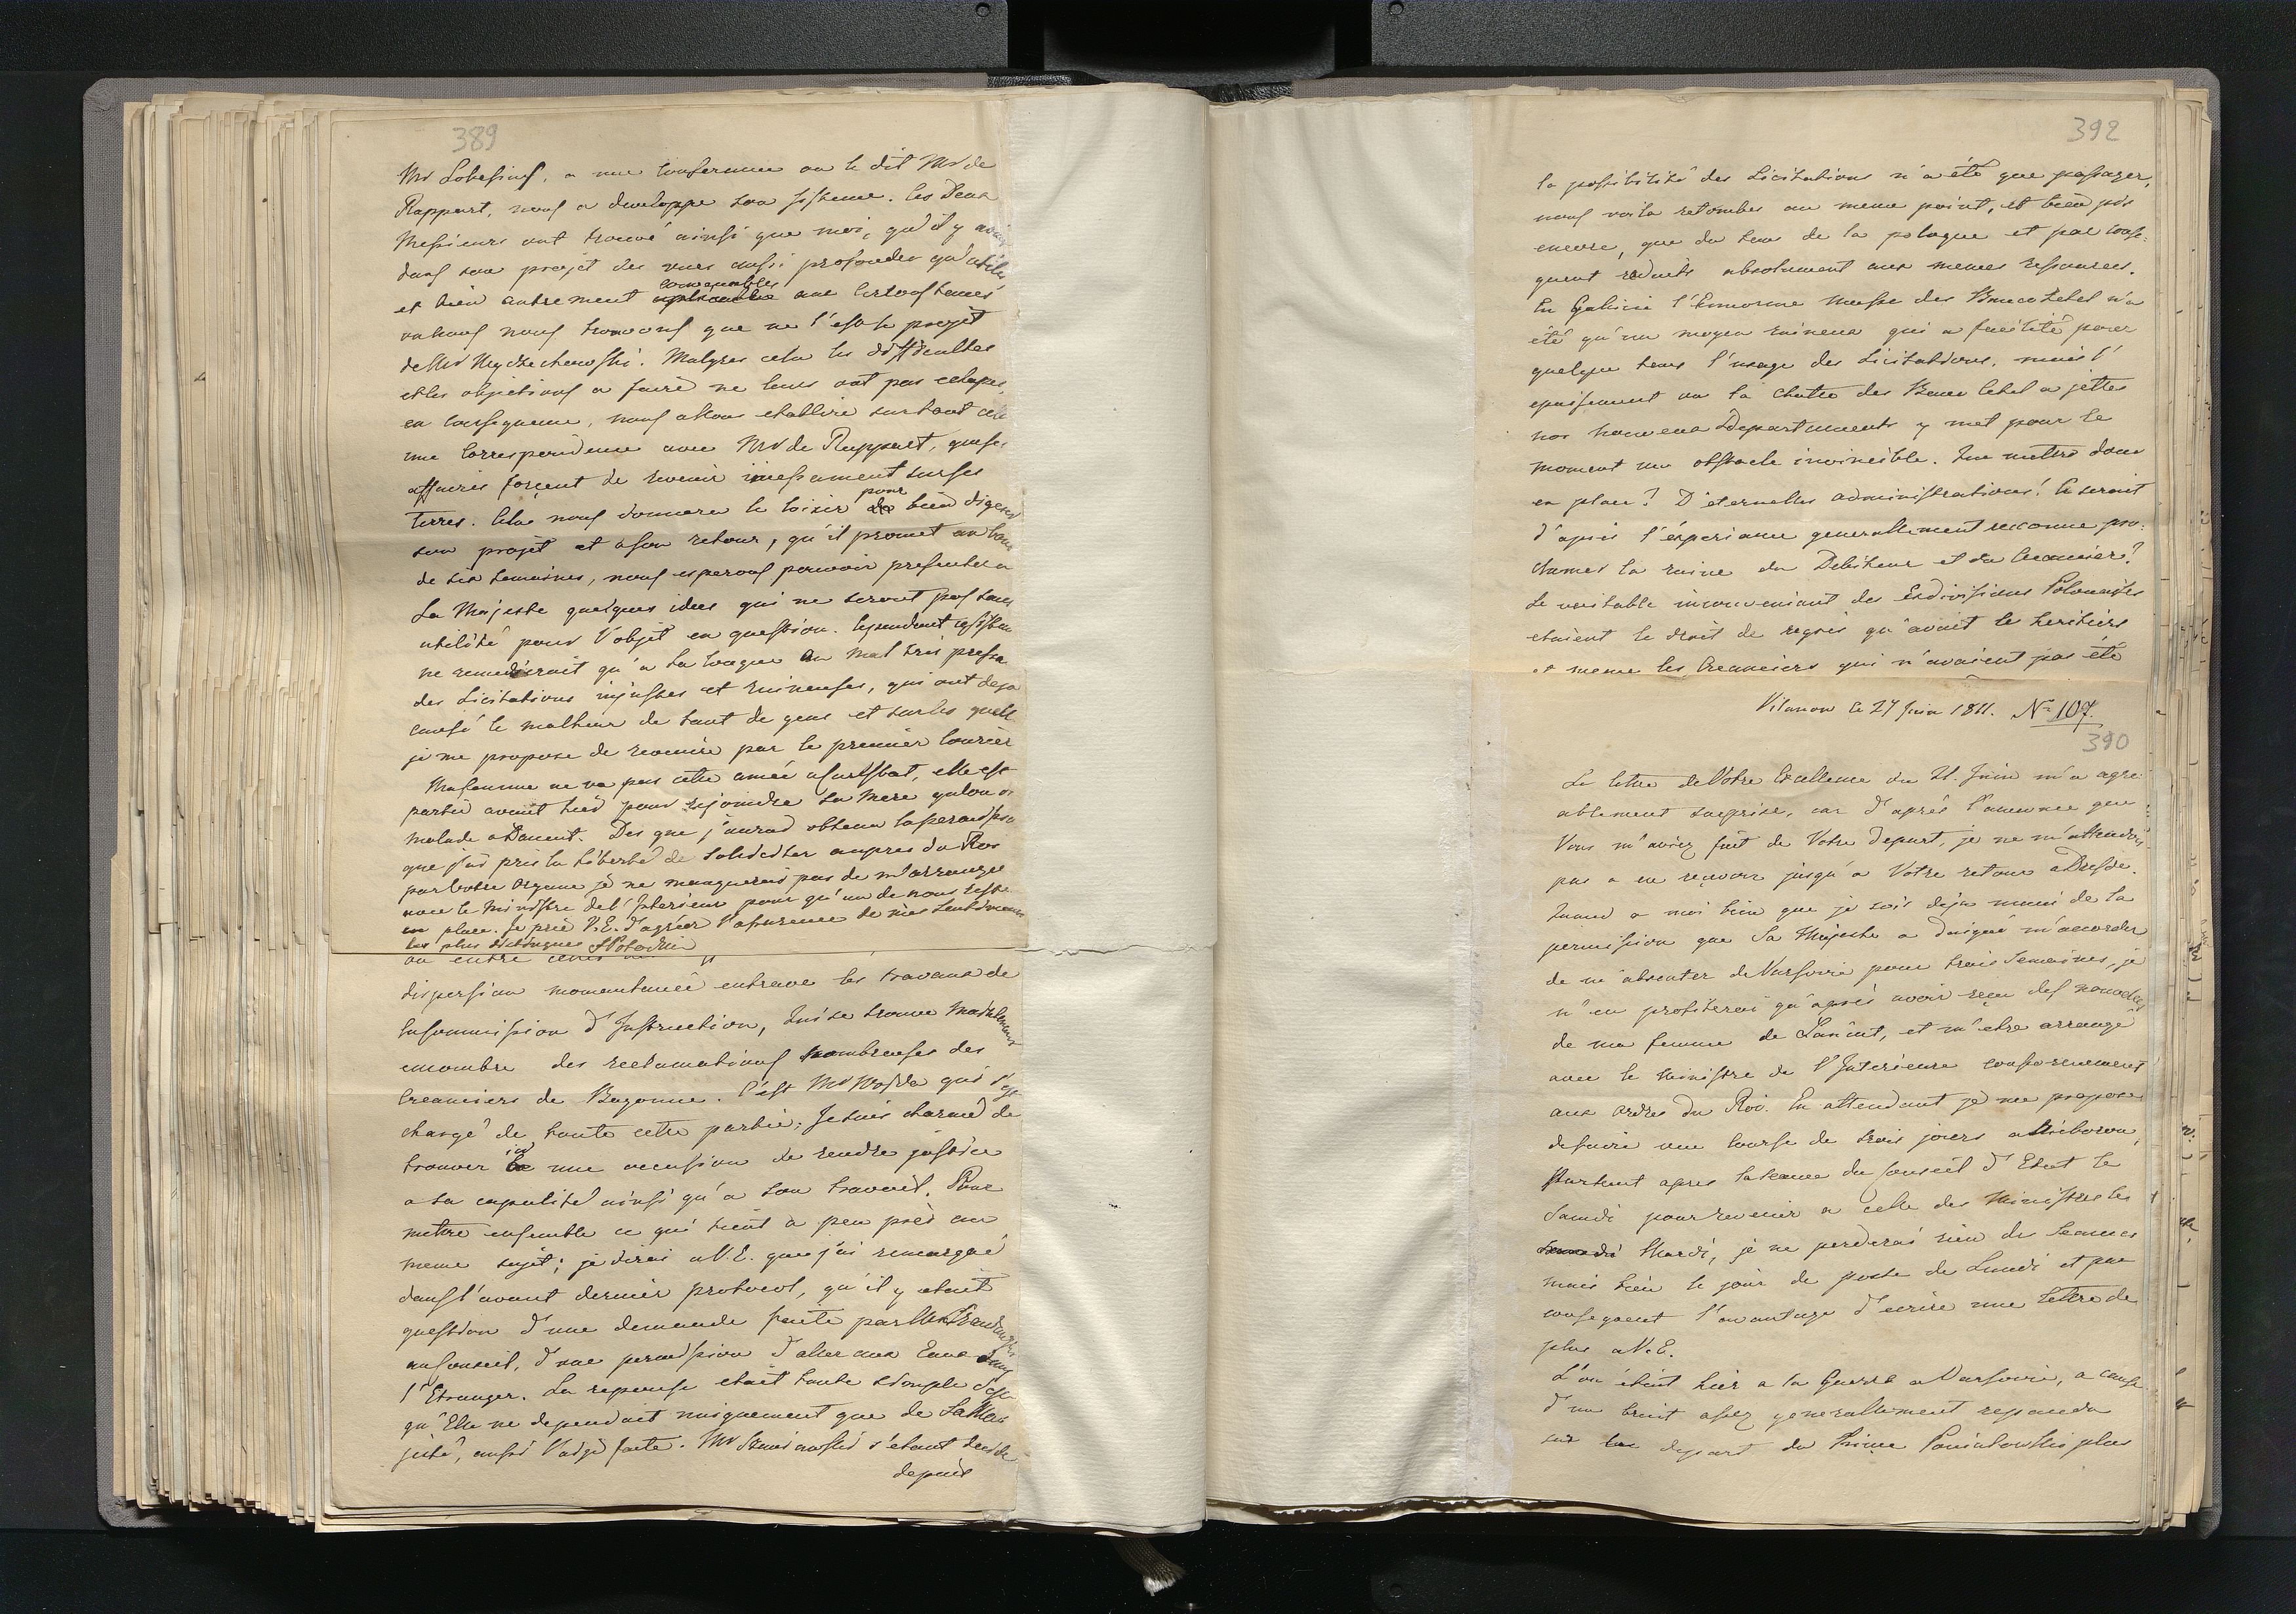 389
Mr Lobesius, a une conference ou le dit Mr de
Rappart, nous a developpe son sisteme. Ces Deux
Messieurs ont trouvé ainsi que moi, qu'il y avoit
dans son projet des vues aussi profondes qu'utiles
et bien autrement convenables aux Circonstances
ou nous nous trouvons que ne l'est le projet
de Mr Wyczechowski. Malgres cela les difficultes
et les objections a faire ne leurs ont pas echapés,
en Consequence, nous allons etablire surtout cela
une Correspondence avec Mr de Rappart, que ses
affaires forçent de revenir incessament sur ses
terres. Cela nous donnera le loisir pour bien digerer
son projet et a son retour, qu'il promet au bout
de six semaines, nous esperons pouvoir presenter a
Sa Majeste quelques idees qui ne seront pas sans
utilité pour l'objet en question. Cependant ce sisteme
ne remedierait qu'a la longue au mal tres pressant
des Licitations injustes et ruineuses, qui ont deja
causé le malheur de tant de gens et sur les quels
je me propose de revenire par le premier Courier
Ma femme ne va pas cette année a Carlsbat, elle est
partie avant hier pour rejoindre sa Mere qu'on dit
malade a Lancut. Des que j'aurai obtenu la permission
que j'ai pris la Liberté de solliciter aupres du Roi
par Votre Organe je ne manquerais pas de m'arranger
avec le Ministre de l'Interieur pour qu'un de nous reste
en place. Je prie V.E. d'agréer l'assurence de mes sentimens
les plus distingues S Potocki
ou entre
dispersion momentanée entrave les travaux de
la Commission d'Instruction, qui se trouve maintenant
encombre des reclamations nombreuses des
Creanciers de Bayonne. C'est Mr Woyda qui s'est
chargé de toute cette partie; Je suis charmé de
trouver ici une occasion de rendre justice
a sa capacité ainsi qu'a son travail. Pour
mettre ensemble ce qui tient à peu près au
meme sujet; je dirai a V.E. que j'ai remarqué
dans l'avant dernier protocol, qu'il y etait
question d'une demande faite par Mr
au Conseil, d'une permission d'aller aux Eaux dans
l'Etranger. La reponse etait toute simple c'est
qu'Elle ne dependait uniquement que de Sa Ma
jesté, aussi l'a-t-on faite. Mr s'etant decidé
depuis
392
la possibilité des Licitations n'a été que passager,
nous voila retombes au meme point, et bien pis
encore, que du tems de la pologne et par conse:
quent reduits absolument aux memes ressources.
En Galicie l'Enorme masse des Banco Zetel n'a
été qu'un moyen ruineux qui a facilité pour
quelque tems l'usage des Licitations, mais l'
epuisement ou la chutte des Banco Zetel a jettes
nos nouveaux Departements y met pour le
moment un obstacle invincible. Que mettre donc
en place? D'eternelles administrations! Ce serait
d'apres l'experiance generallement reconnue pro:
clamer la ruine du Debiteur et du Creancier?
Le veritable inconveniant des Exdivisions Polonaises
etaient le droit de regrès qu'avait le heritiers
et meme les Creanciers qui n'avaient pas été
Vilanow le 27 Juin 1811. No 107.
390
La lettre de Votre Excellence du 21. Juin m'a agre:
ablement surprise, car d'aprés l'annonce que
Vous m'aviez fait de Votre depart, je ne m'attendois
pas a en reçevoir jusqu'a Votre retour a Dresde.
Quand a moi bien que je sois deja muni de la
permission que Sa Majeste a daigné m'accorder
de m'absenter de Varsovie pour trois Semaines, je
n'en profiterai qu'après avoir reçu des nouvelles
de ma femme de Lancut, et m'etre arrangé
avec le Ministre de l'Interieure conformement
aux ordres du Roi. En attendant je me propose
de faire une Course de trois jours a Nieborow,
Partant apres la seance du Conseil d'Etat le
Samdi pour revenir a celle des Ministres les
Mardi, je ne perderai rien des seances
mais bien le jour de poste de Lundi et par
consequent l'avantage d'ecrire une lettre de
plus a V.E.
L'on etait hier a la Guerre a Varsovie, a cause
d'un bruit assez generallement repandu
sur le depart du Prince Poniatowski plus